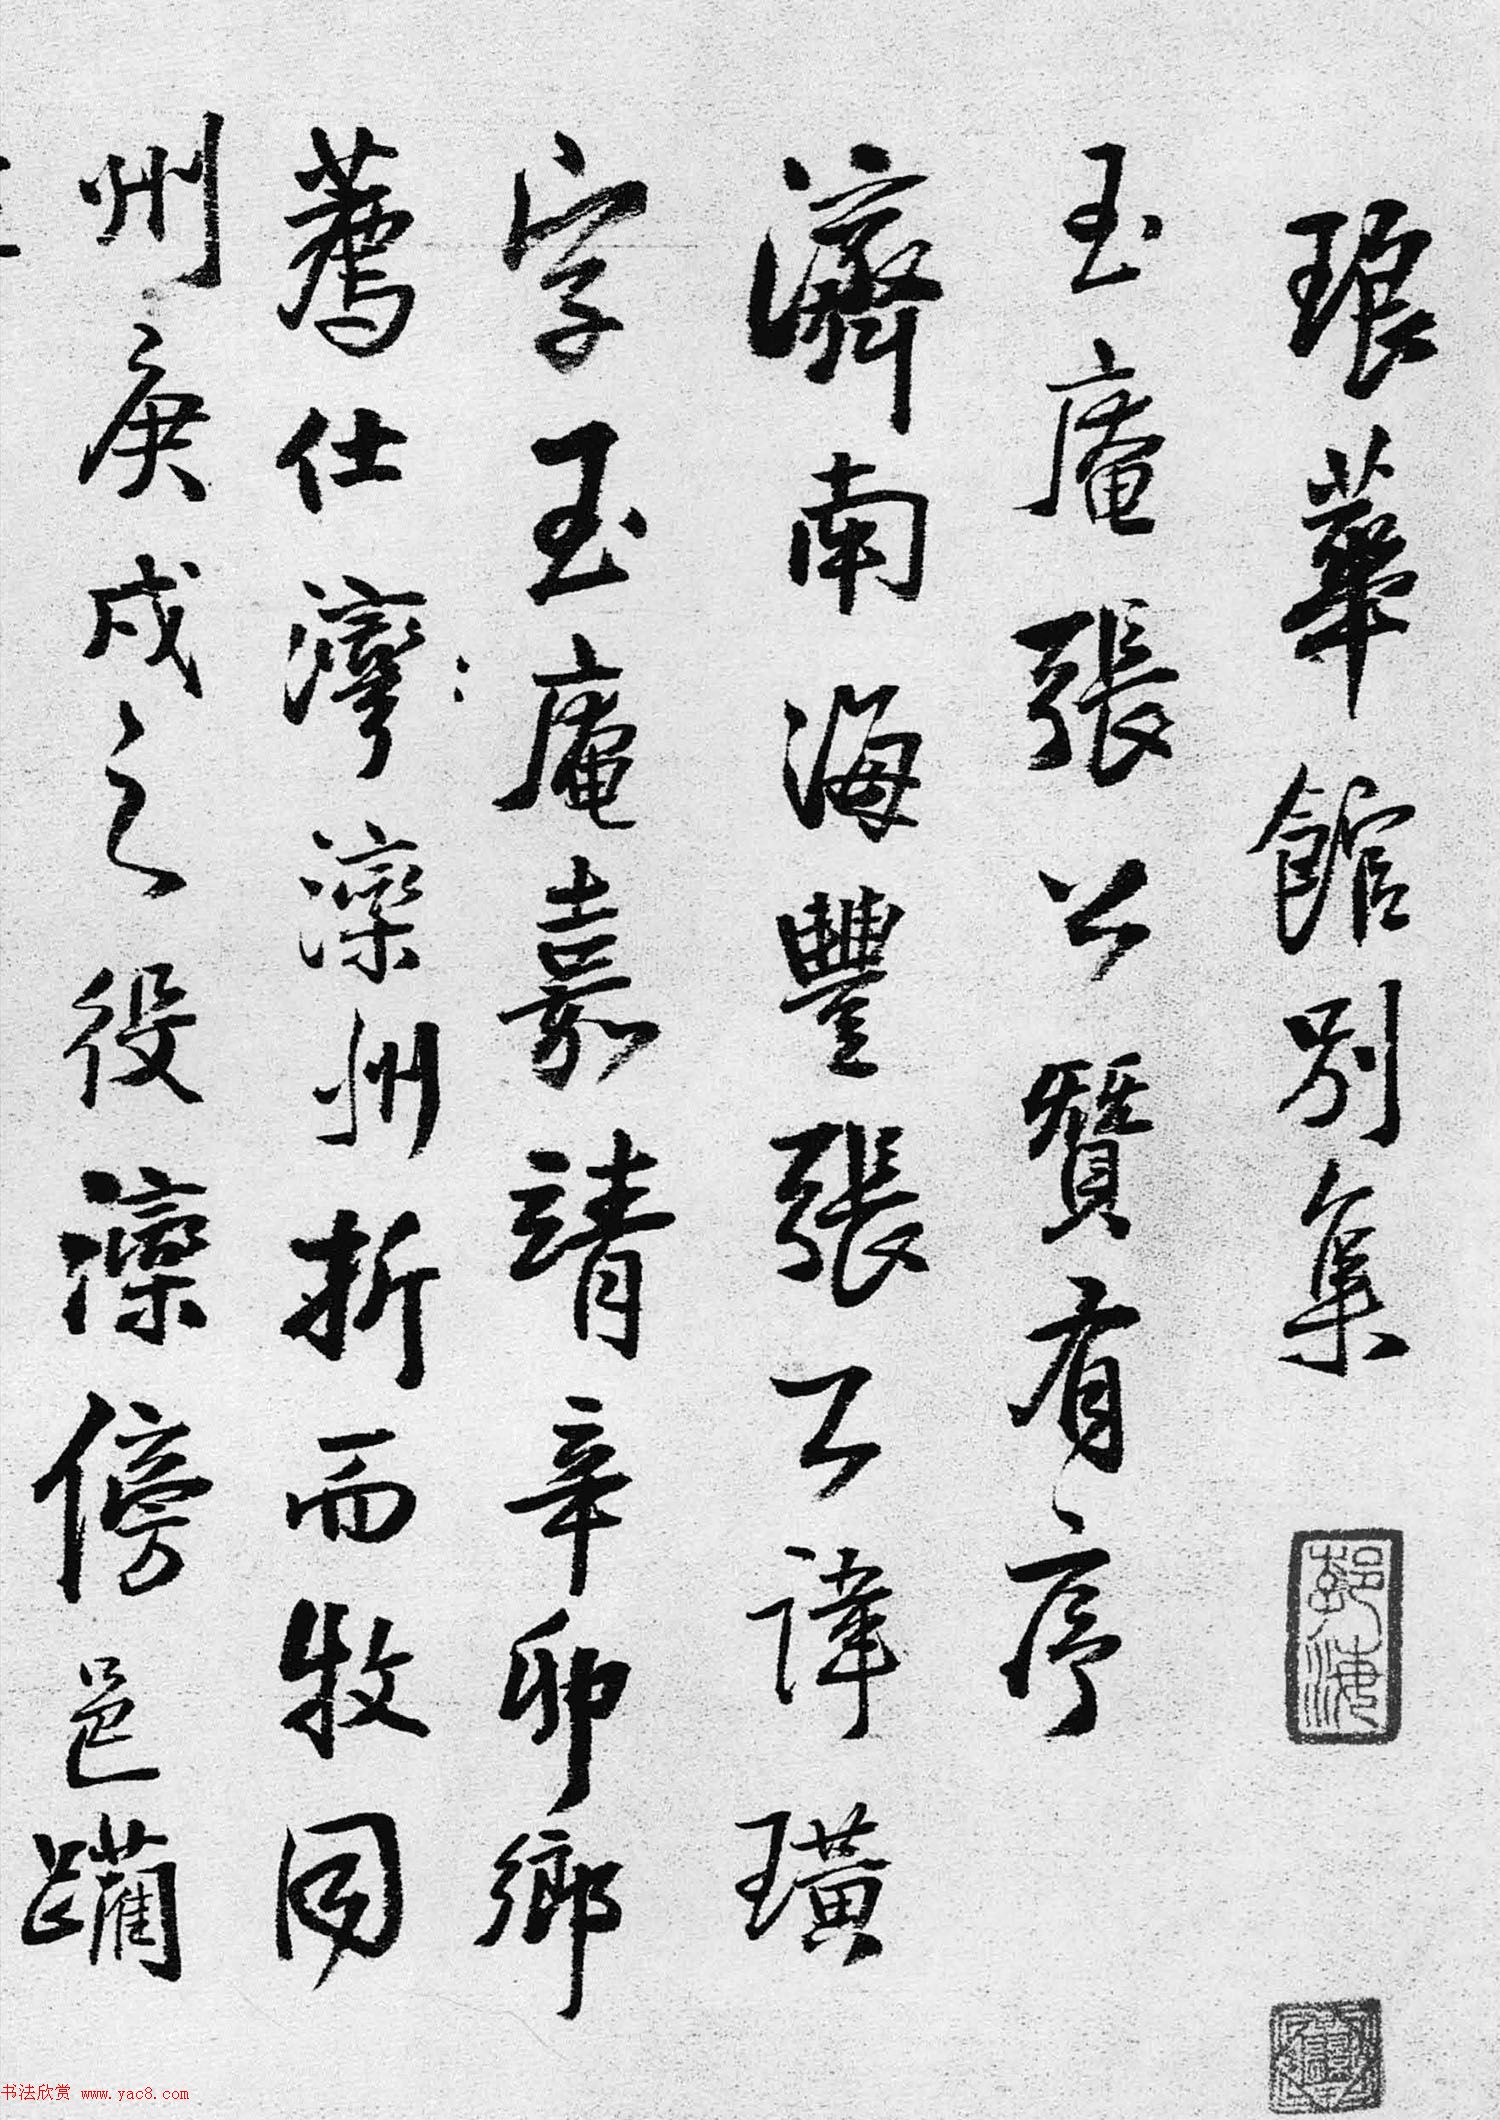 琅華館別集
玉庵張公贊有序
濟南海豐張公諱璜
字玉庵嘉靖辛卯鄉
薦仕灤灤州折而牧同
州庚戌之役灤傍邑躪
书法欣赏 www.yac8.com